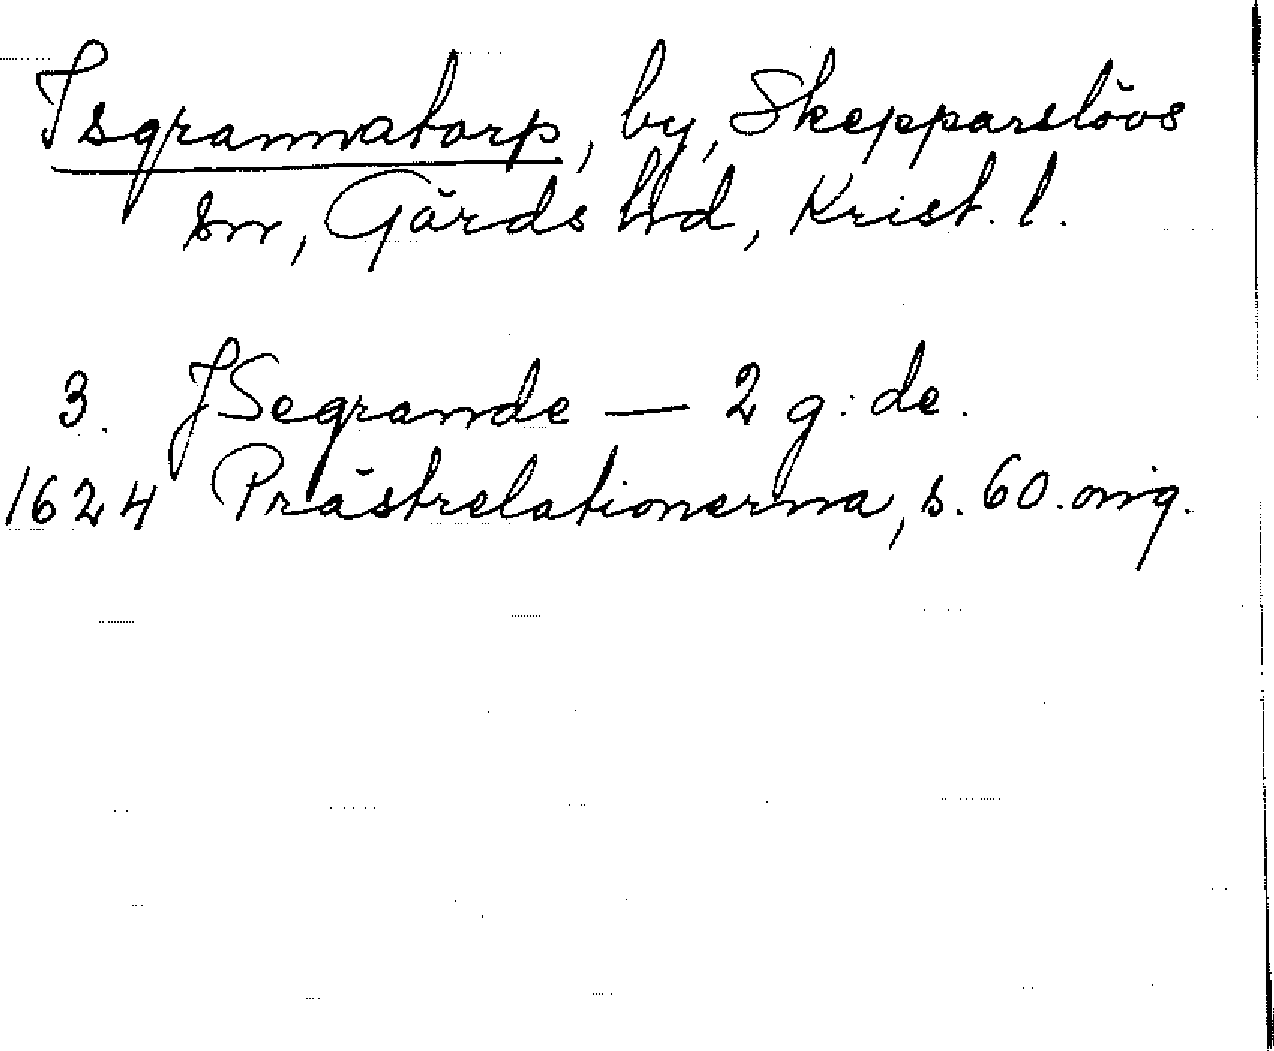 Isgrannatorp, by, Skepparslövs
sn, Gärds hd, Krist. l.
3. JSegrande — 2 g:de.
1624 Prästrelationerna, s. 60. omg.